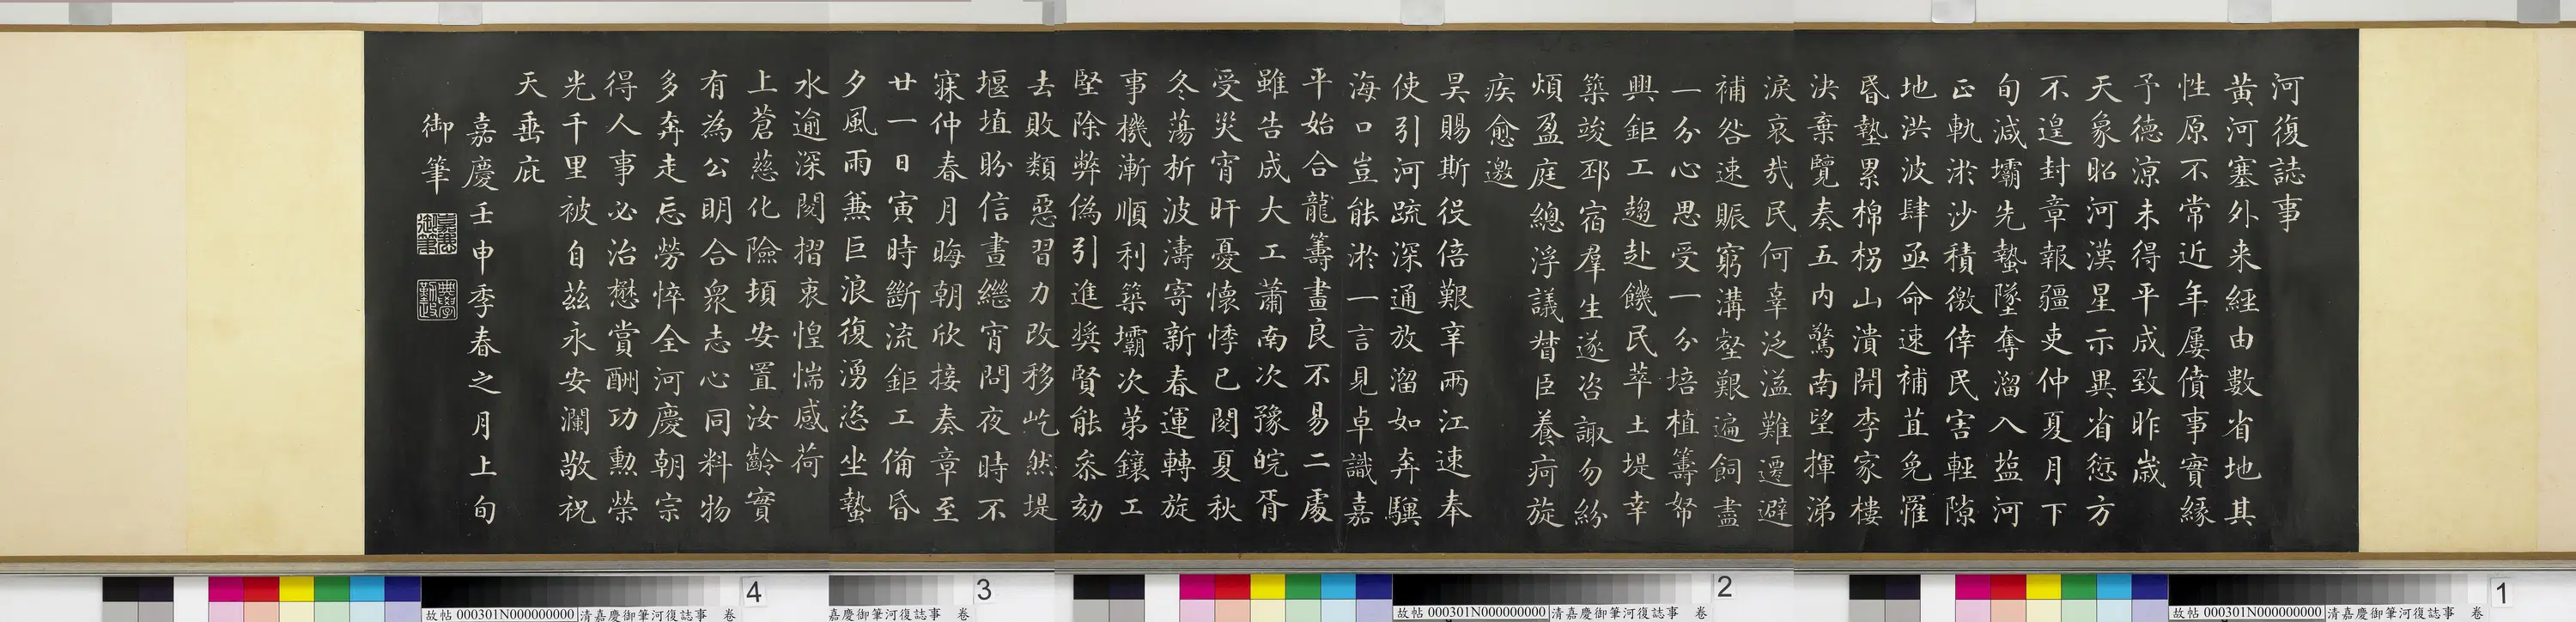 河復誌事
黃河塞外来經由數省地其
性原不常近年屢僨事實緣
予德涼未得平成致昨歲
天象昭河漢星示異省愆方
不遑封章報疆吏仲夏月下
旬減壩先蟄墜奪溜入塩河
正軌淤沙積徼倖民害輕隙
地洪波肆亟命速補苴免罹
昏墊累棉拐山潰開李家樓
決棄覽奏五內驚南望揮涕
淚哀哉民何辜泛溢難遷避
補咎速賑窮溝壑艱遍飼盡
一分心思受一分培植籌帑
興鉅工趨赴饑民萃土堤幸
築竣邳宿羣生遂咨諏勿紛
煩盈庭總浮議瞽臣養疴旋
疾愈邀
昊賜斯役倍艱辛兩江速奉
使引河疏深通放溜如奔驥
海口豈能淤一言見卓識嘉
平始合龍籌畫良不易二處
雖告成大工蕭南次豫皖胥
受災宵旰憂懷悸已閱夏秋
冬蕩析波濤寄新春運轉旋
事機漸順利築壩次第鑲工
堅除弊偽引進奬賢能叅劾
去敗類惡習力改移屹然堤
堰埴盼信晝繼宵問夜時不
寐仲春月晦朝欣接奏章至
廿一日寅時斷流鉅工俻昏
夕風雨兼巨浪復湧恣坐蟄
水逾深閱摺衷惶惴感荷
上蒼慈化險頃安置汝齡實
有為公明合衆志心同料物
多奔走忘勞悴全河慶朝宗
得人事必治懋賞酬功勲榮
光千里被自茲永安瀾敬祝
天垂庇
嘉慶壬申季春之月上旬
御筆
嘉慶御筆
典學勤政
4
3
2
1
故帖 000301N000000000 清嘉慶御筆河復誌事 卷
嘉慶御筆河復誌事 卷
故帖 000301N000000000 清嘉慶御筆河復誌事 卷
故帖 000301N000000000 清嘉慶御筆河復誌事 卷